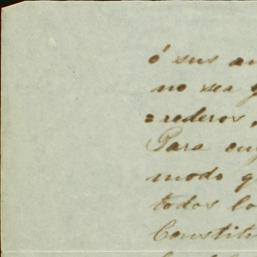 ó sus an
no sea g
=rederos,
Para cuy
modo q
todos lo
Constitu